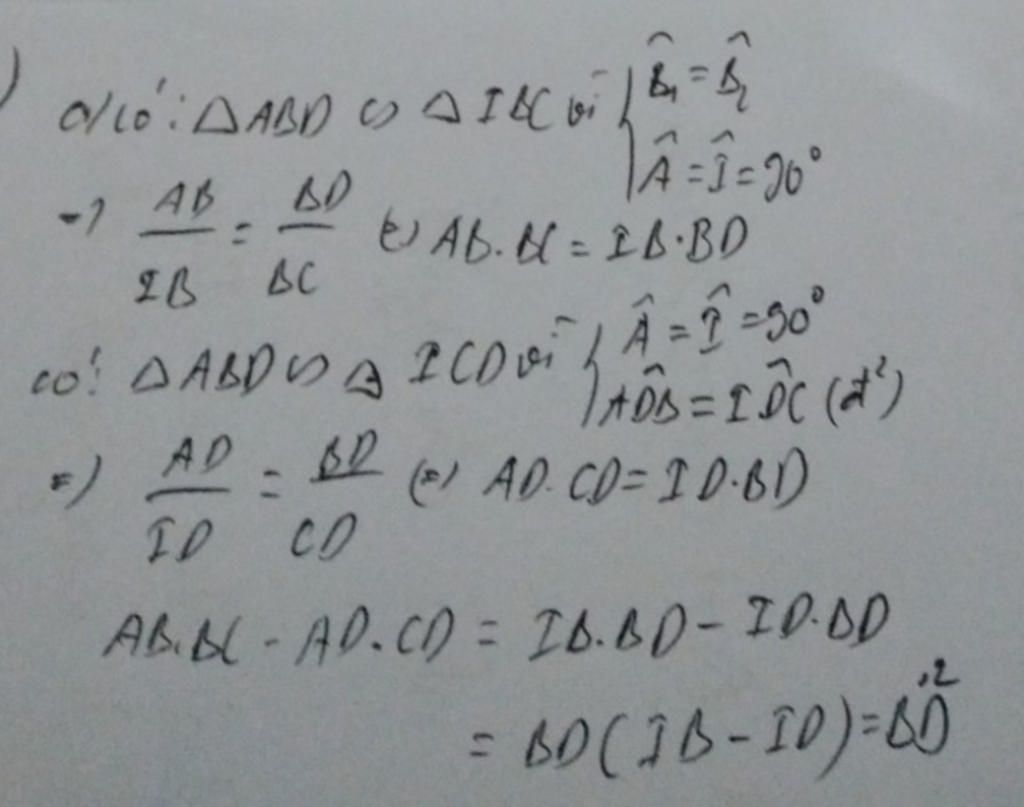 ) a/ có: △ABD ∽ △IBC vì { B̂₁ = B̂₂
Â = Î = 90°
=> AB/IB = BD/BC <=> AB.BC = IB.BD
có: △ABD ∽ △ICD vì { Â = Î = 90°
ADB̂ = IDĈ (đ²)
=> AD/ID = BD/CD <=> AD.CD = ID.BD
AB.BC - AD.CD = IB.BD - ID.BD
= BD(IB - ID) = BD²